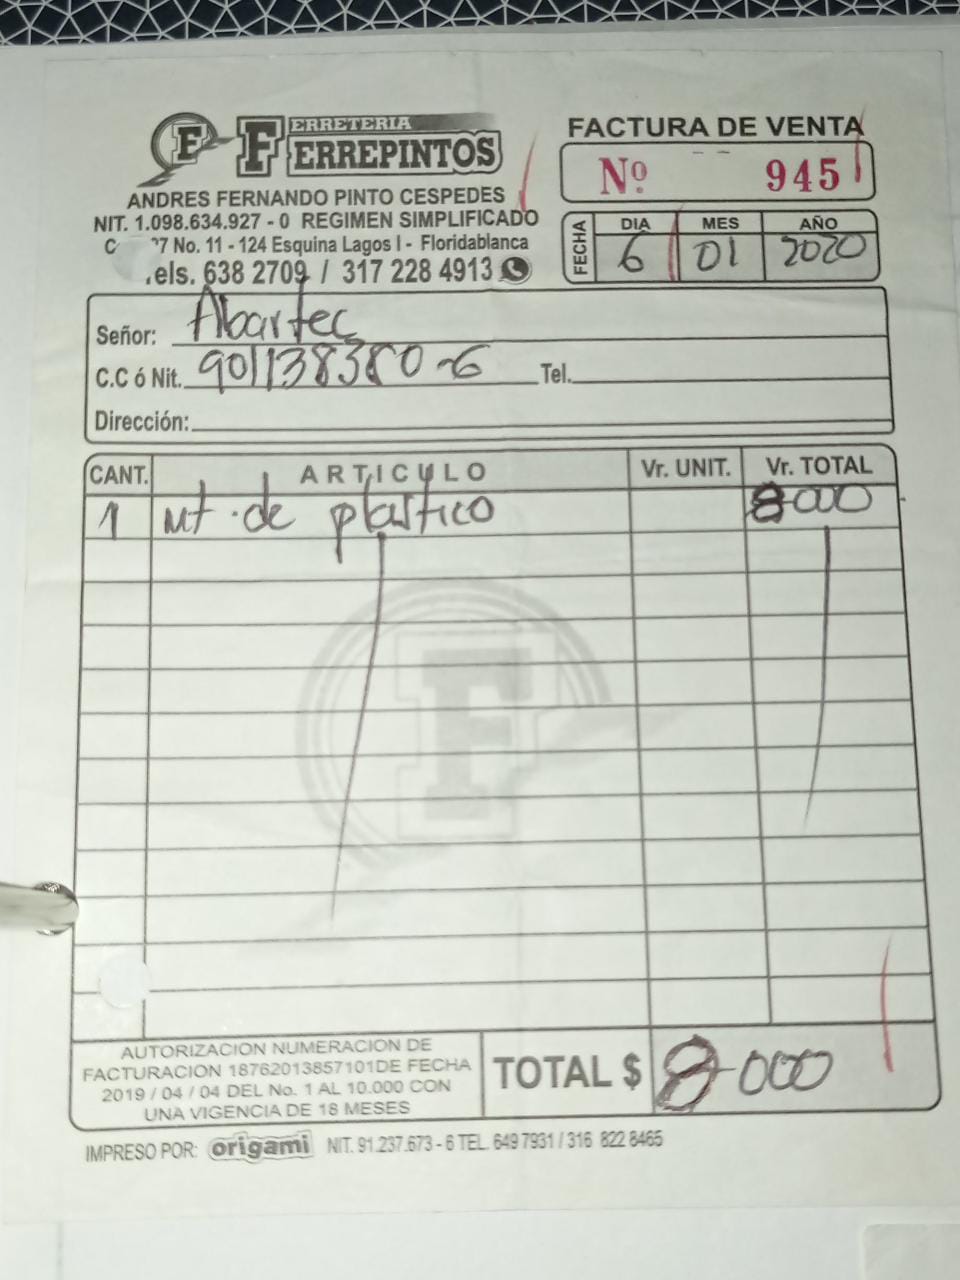 FERRETERIA
FERREPINTOS
ANDRES FERNANDO PINTO CESPEDES
NIT. 1.098.634.927 - 0 REGIMEN SIMPLIFICADO
No. 11 - 124 Esquina Lagos I - Floridablanca
els. 638 2709 / 317 228 4913
FACTURA DE VENTA
Nº 945
FECHA
DIA MES AÑO
6 01 2020
Señor: Abartec
C.C ó Nit. 901138380-6 Tel.
Dirección:
CANT. ARTICULO Vr. UNIT. Vr. TOTAL
1 Mt de plastico 8000
AUTORIZACION NUMERACION DE
FACTURACION 18762013857101DE FECHA
2019 / 04 / 04 DEL No. 1 AL 10.000 CON
UNA VIGENCIA DE 18 MESES
TOTAL $ 8000
IMPRESO POR: origami NIT. 91.237.673 - 6 TEL. 649 7931 / 316 822 8465